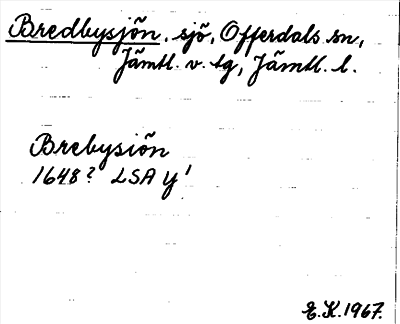 Bredbysjön, sjö, Offerdals sn,
Jämtl. v. tg, Jämtl. l.
Brebysiön
1648? LSA y'
E.K. 1967.